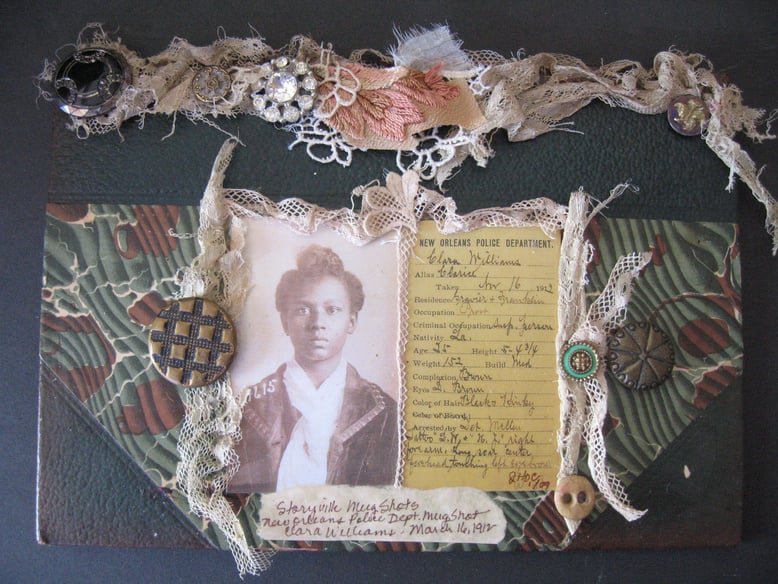 NEW ORLEANS POLICE DEPARTMENT.
Clara Williams
Alias Clarice
Taken Nov 16, 1912
Residence Gravier & Franklin
Occupation Pros
Criminal Occupation Susp. Person
Nativity La.
Age 25 Height 5-4 3/4
Weight 152 Build Med
Complexion Brown
Eyes D. Brown
Color of Hair Black & Kinky
Color of Beard
Arrested by Det. Miller
Tattoo right
forearm. Long scar center
forehead touching left eyebrow
Storyville MugShots
New Orleans Police Dept. MugShot
Clara Williams - March 16, 1912